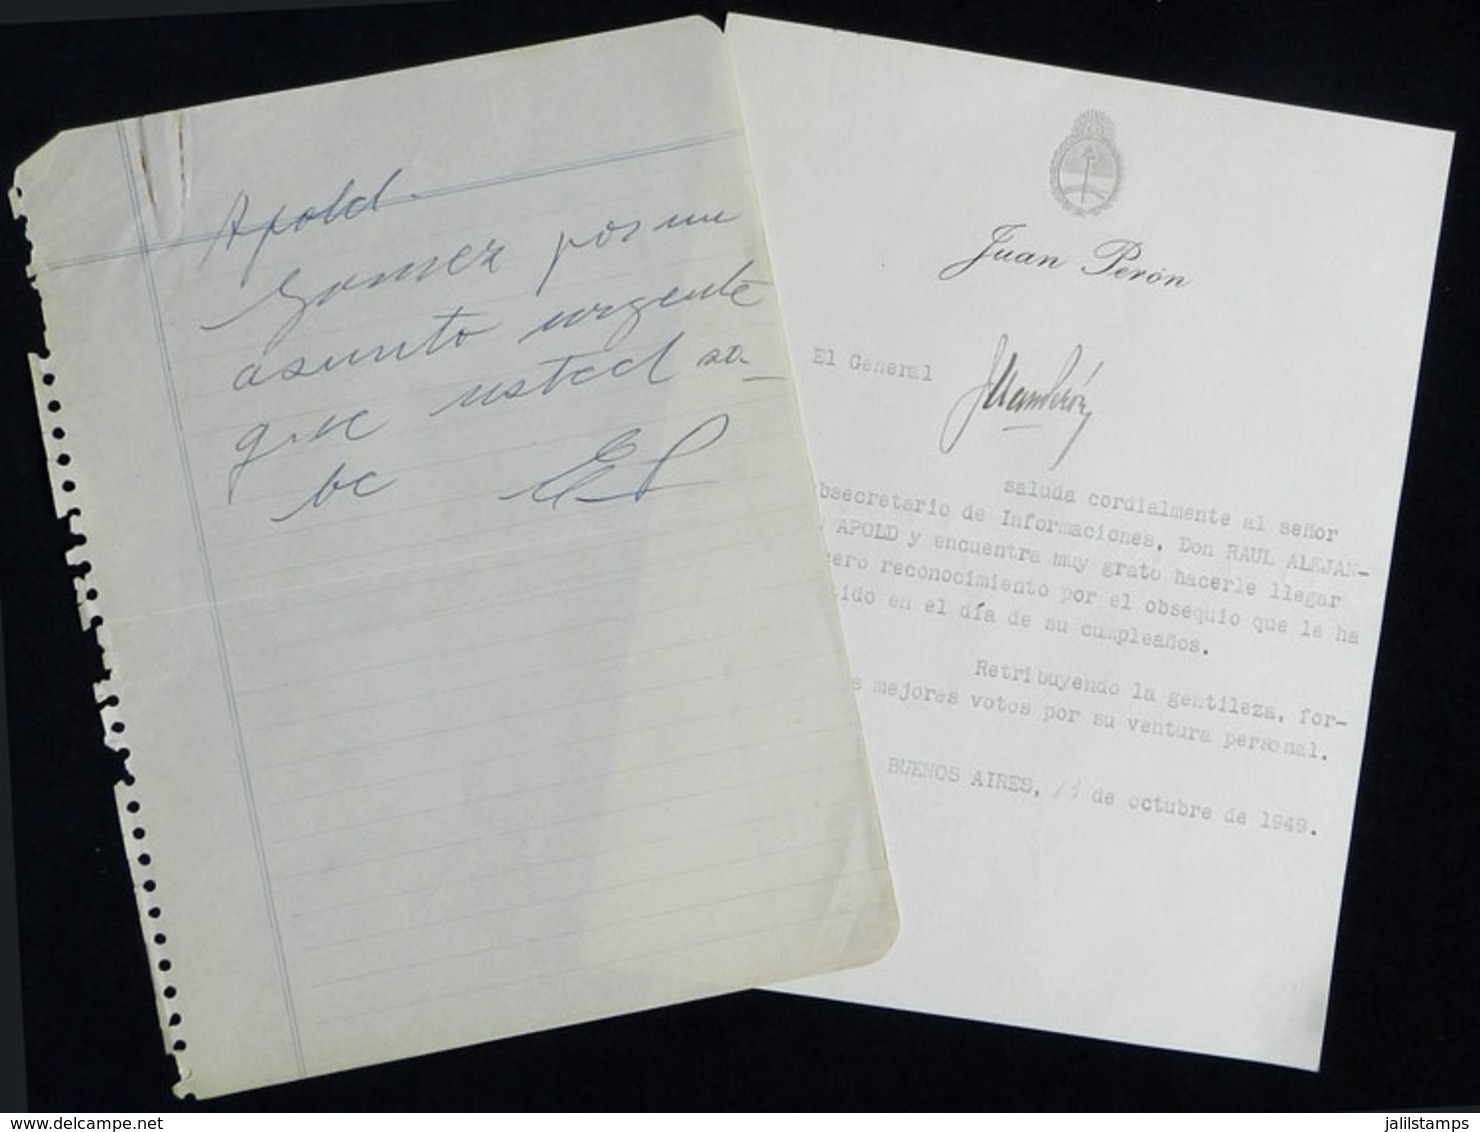 Apold.
Gomez por un
asunto urgente
que usted sa-
be EP
Juan Perón
El General JuanPerón
saluda cordialmente al señor
bsecretario de Informaciones, Don RAUL ALEJAN-
APOLD y encuentra muy grato hacerle llegar
cero reconocimiento por el obsequio que le ha
ido en el día de su cumpleaños.
Retribuyendo la gentileza, for-
s mejores votos por su ventura personal.
BUENOS AIRES, 13 de octubre de 1949.
delcampe.net
jalilstamps